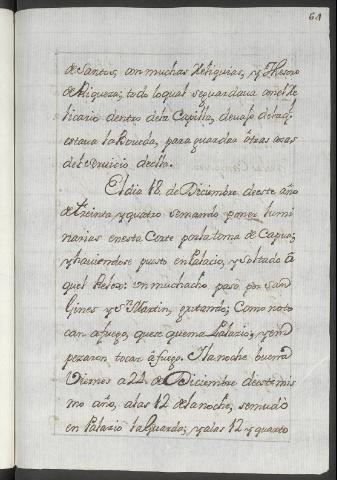 61
de Santos, con muchas Reliquias, y Thesoro
de Riqueza; todo lo qual se guardava con el Re
licario dentro de la Capilla, devajo de la qͥ
estava la Boveda, para guardar otras cosas
del servicio de ella.
El dia 18. de Diciembre de este año
de treinta y quatro se mandó poner lumi
narias en esta Corte por la toma de Capua;
y haviendose puesto en Palacio, y soltado à
quel Relox: un muchacho pasó por San
Gines y Sⁿ Martin, gritando; Como no to
can a fuego, que se quema Palacio; y em
pezaron, tocar à fuego. Ila noche buena
Viernes a 24. de Diciembre de este mis
mo año, a las 12 de la noche, se mudò
en Palacio la Guardia; y a las 12 y quarto